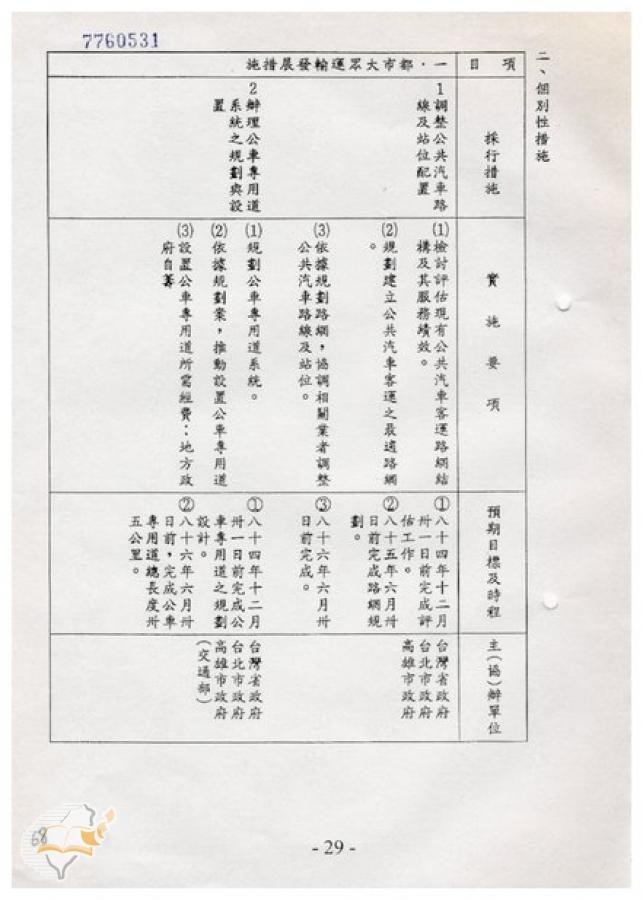 7760531
二、個別性措施
項目
採行措施
實施要項
預期目標及時程
主(協)辦單位
一．都市大眾運輸發展措施
1調整公共汽車路
線及站位配置
⑴檢討評估現有公共汽車客運路網結
構及其服務績效。
⑵規劃建立公共汽車客運之最適路網
。
⑶依據規劃路網，協調相關業者調整
公共汽車路線及站位。
①八十四年十二月
卅一日前完成評
估工作。
②八十五年六月卅
日前完成路網規
劃。
③八十六年六月卅
日前完成。
台灣省政府
台北市政府
高雄市政府
2辦理公車專用道
系統之規劃與設
置
⑴規劃公車專用道系統。
⑵依據規劃案，推動設置公車專用道
⑶設置公車專用道所需經費：地方政
府自籌
①八十四年十二月
卅一日前完成公
車專用道之規劃
設計。
②八十六年六月卅
日前，完成公車
專用道總長度卅
五公里。
台灣省政府
台北市政府
高雄市政府
(交通部)
68
- 29 -